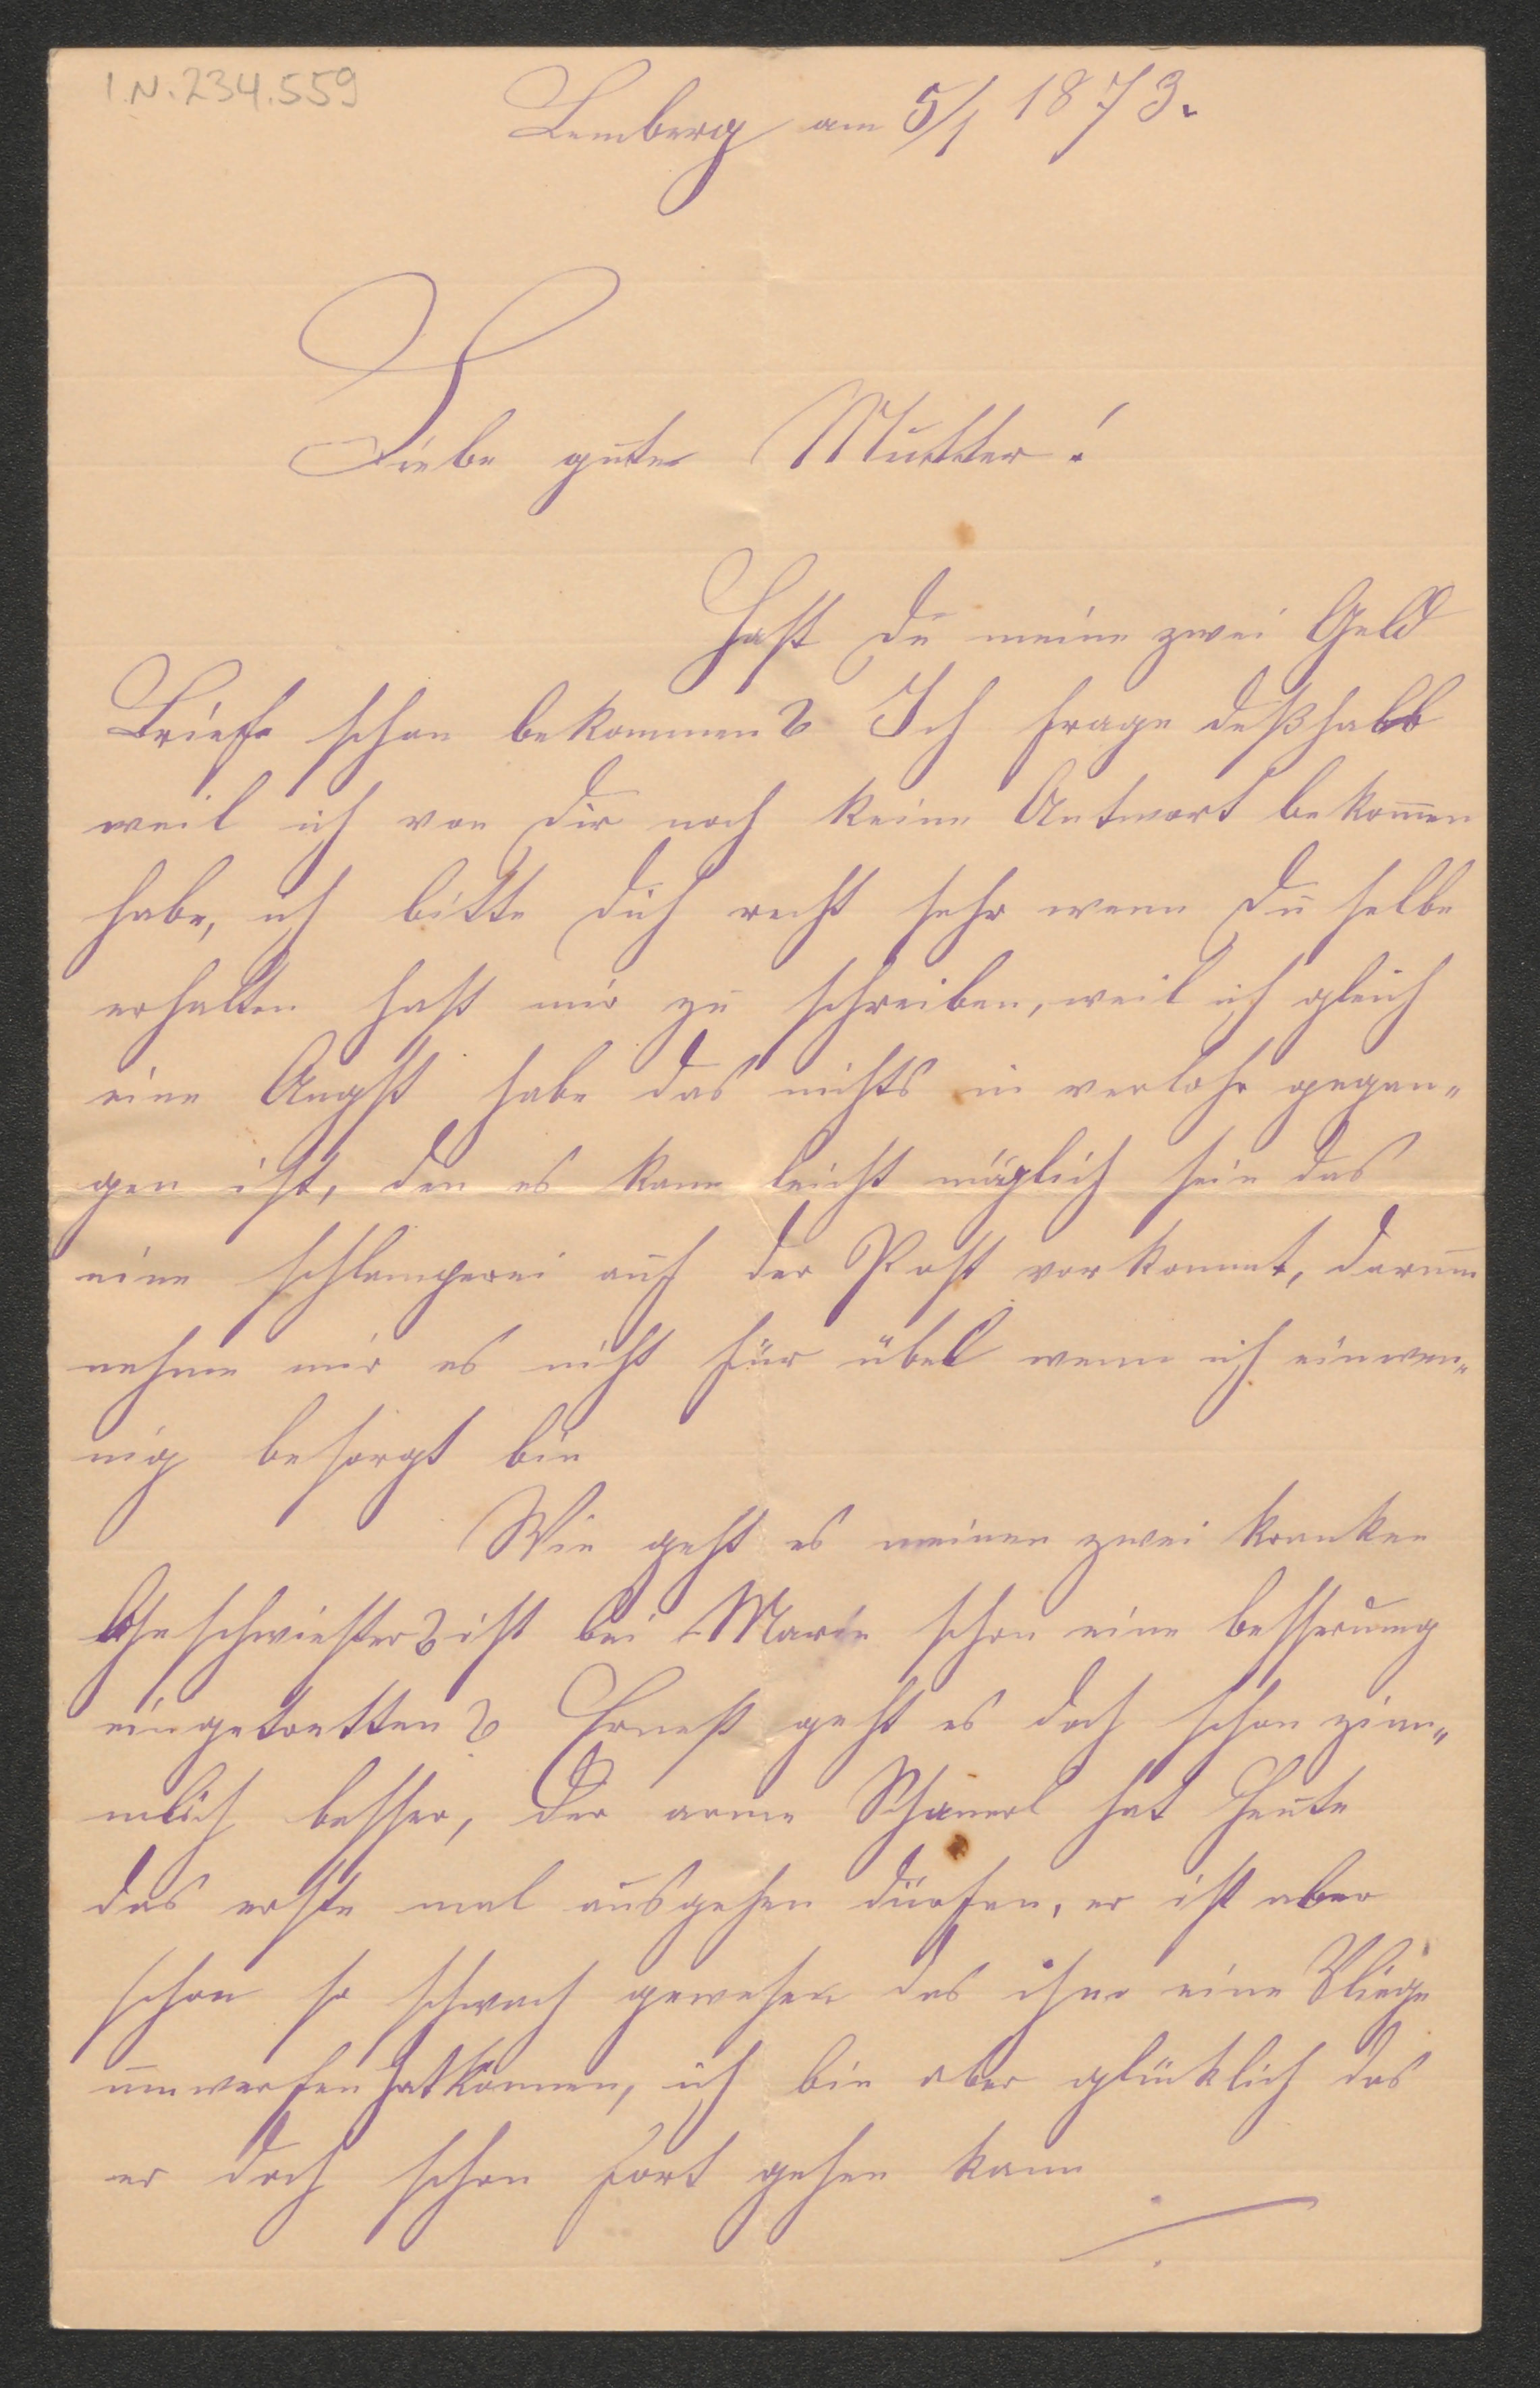 I.N. 234.559
Lemberg am 5/1 1873.
Liebe gute Mutter!
Hast du meine zwei Geld
Briefe schon bekommen? Ich frage deßhalb
weil ich von dir noch keine Antwort bekom̅en
habe, ich bitte dich recht sehr wenn du selbe
erhalten hast mir zu schreiben, weil ich gleich
eine Angst habe das nichts in verlohr gegan„
gen ist, den es kann leicht möglich sein das
eine schlamperei auf der Post vorkommt, darum
nehme mir es nicht für übel wenn ich einwen„
nig besorgt bin
Wie geht es meinen zwei kranken
Geschwister? ist bei Marie schon eine besserung
eingetretten? Ernest geht es doch schon ziem„
mlich besser, der arme hat heute
das erste mal ausgehen dürfen, er ist aber
schon so schwach gewesen das ihm eine Fliege
umwerfen hat können, ich bin aber glücklich das
er doch schon fort gehen kann